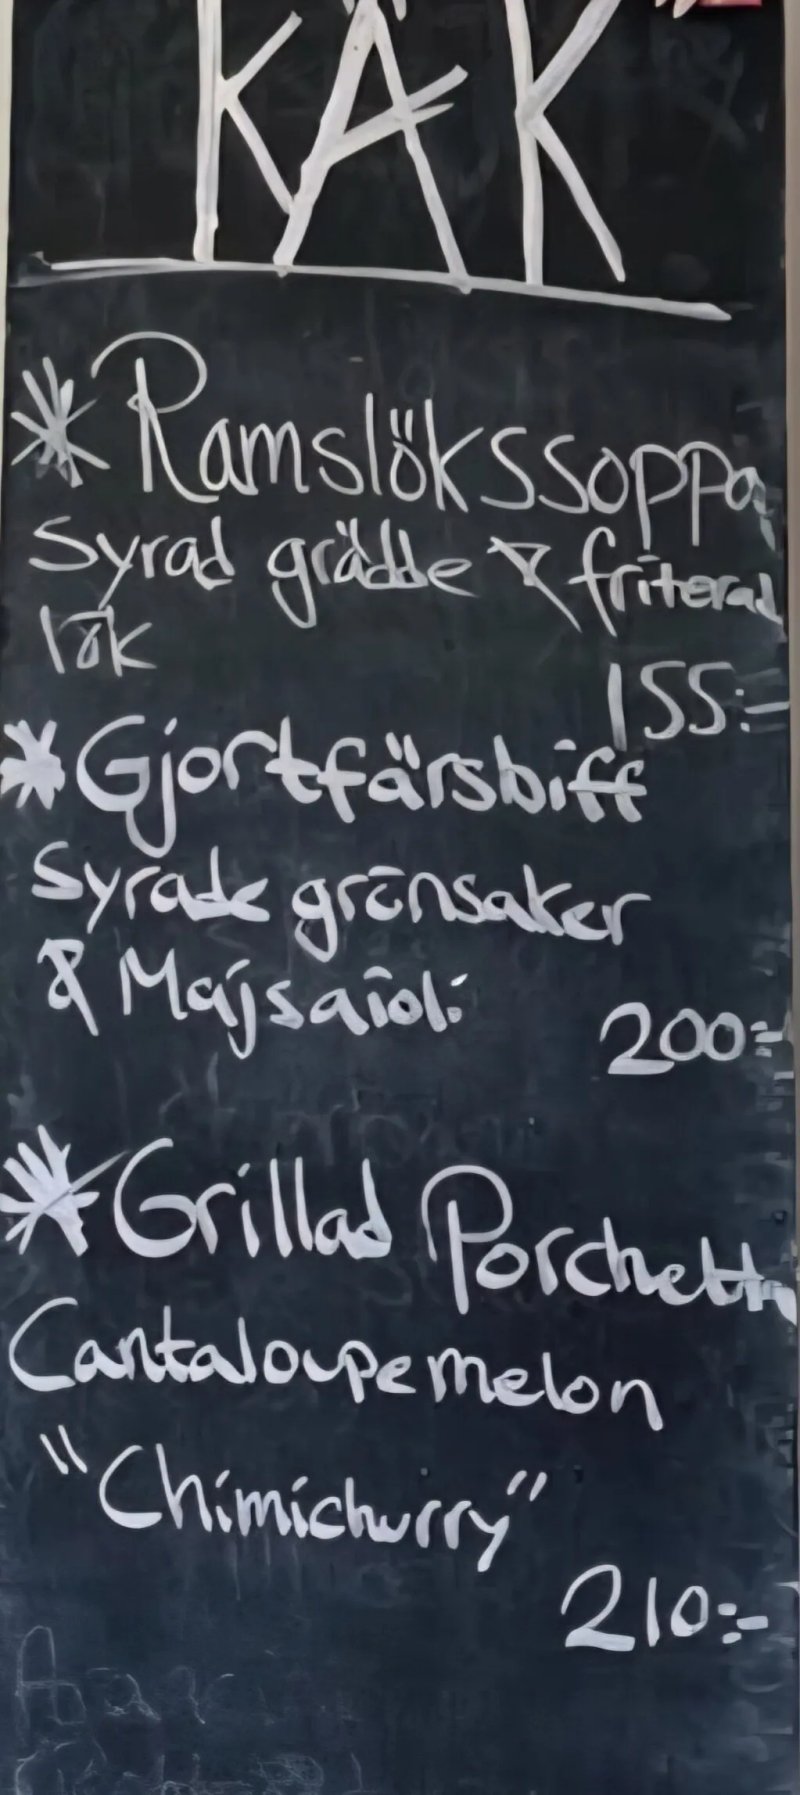 KÄK
* Ramslökssoppa
Syrad grädde & friterad
lök
155:-
* Gjortfärsbiff
Syrade grönsaker
& Majsaioli
200:-
* Grillad Porchetta
Cantaloupemelon
"Chimichurry"
210:-